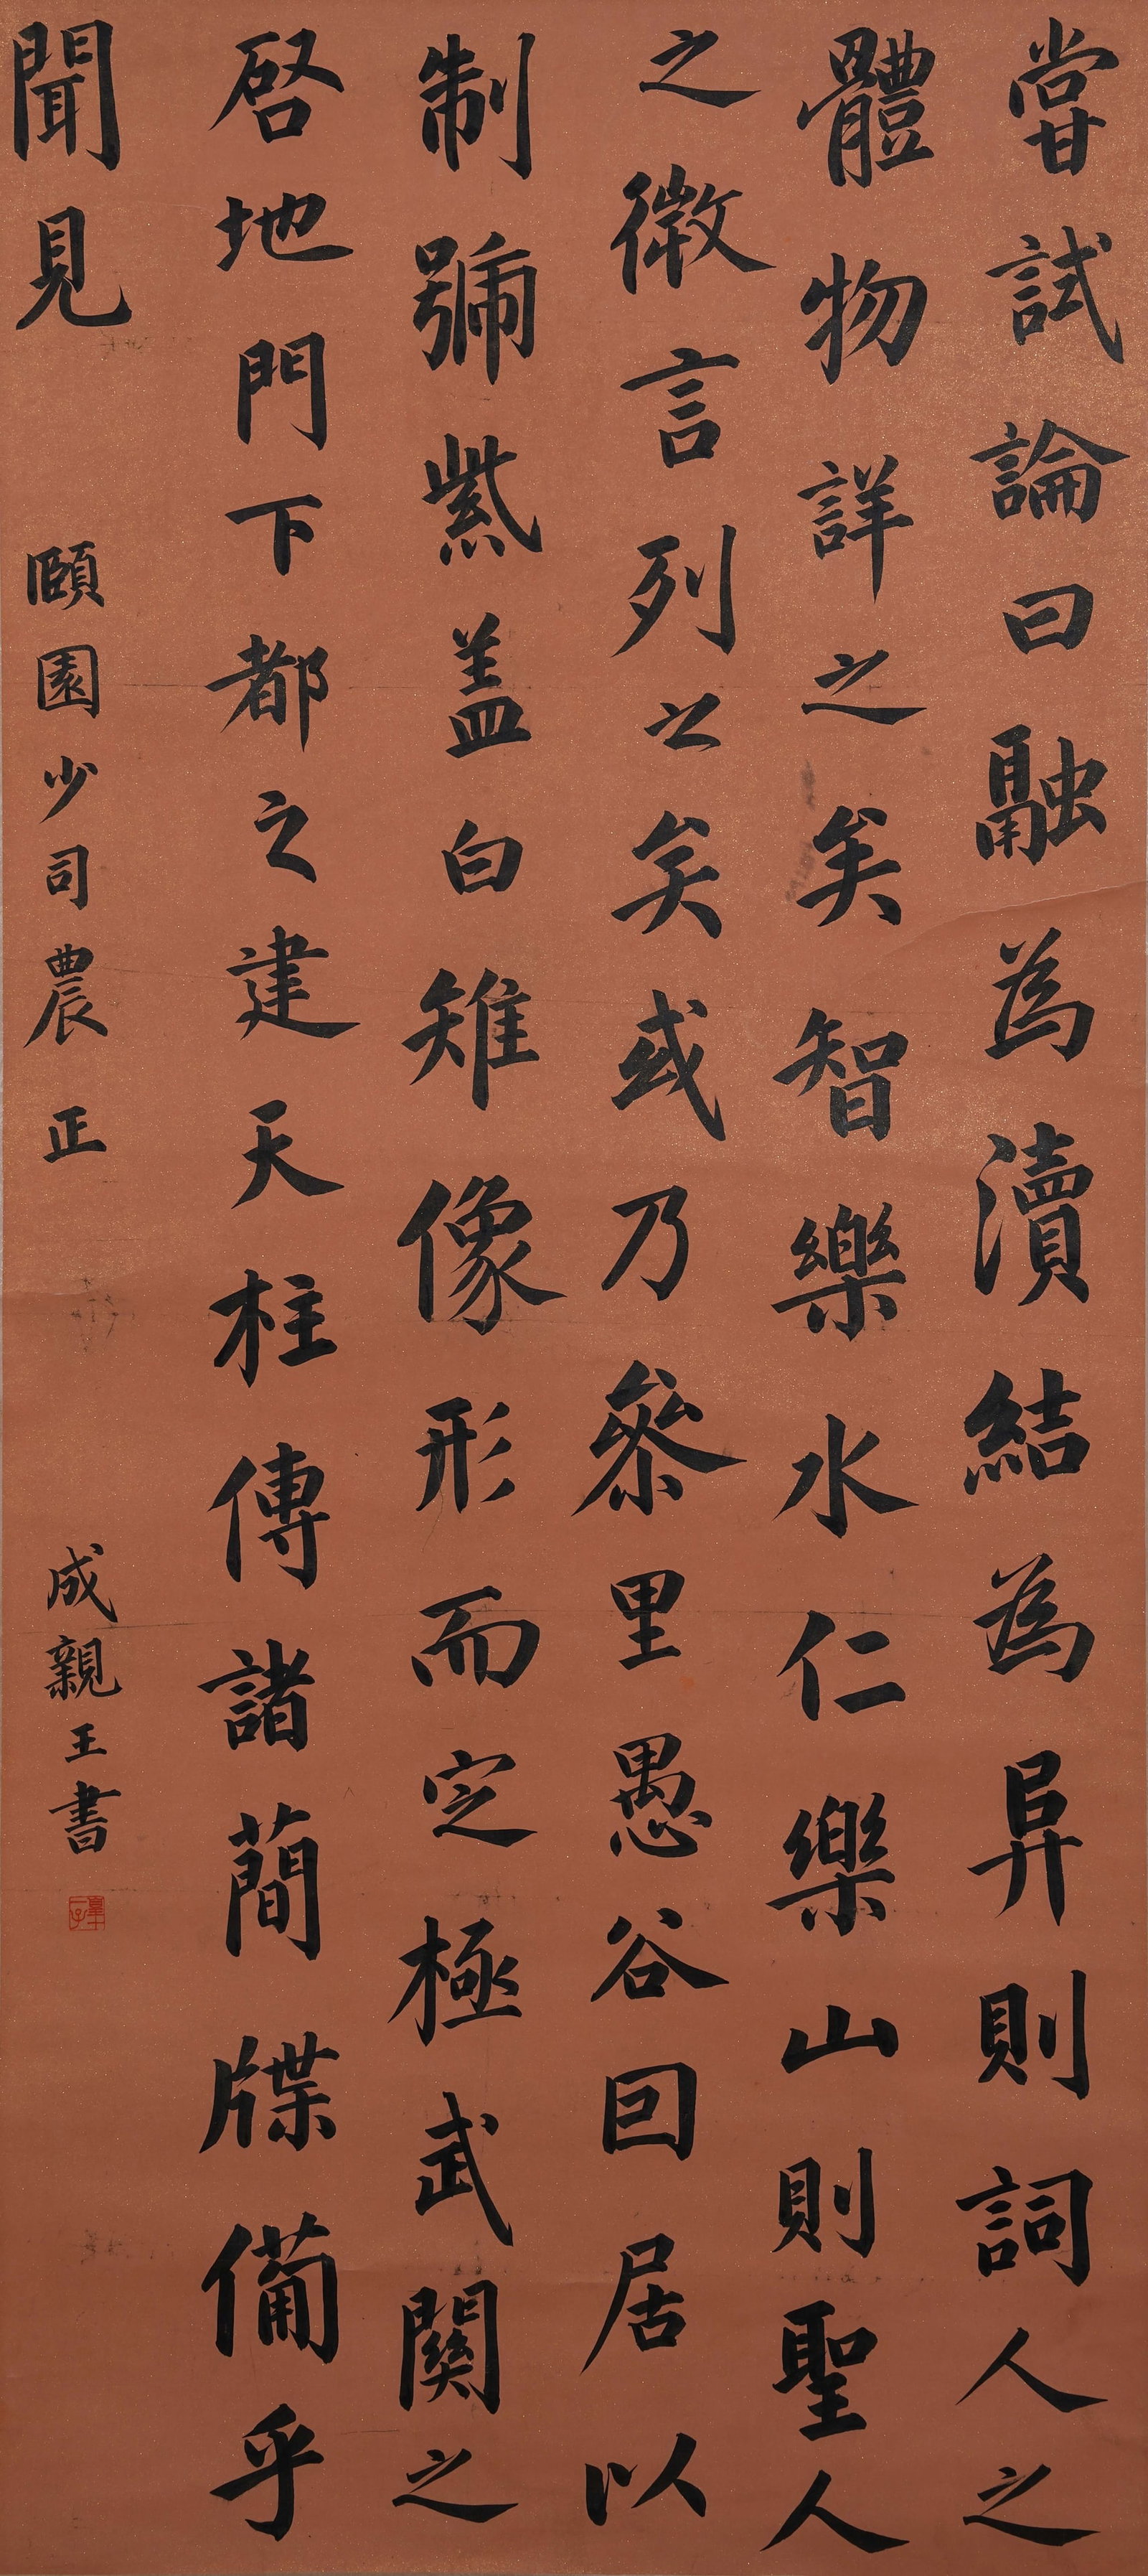 甞試論曰融為瀆結為阜則詞人之
體物詳之矣智樂水仁樂山則聖人
之徽言列之矣或乃叅里愚谷回居以
制號紫盖白雉像形而定極武關之
啓地門下都之建天柱傳諸簡牒備乎
聞見
頤園少司農正
成親王書
皇十一子